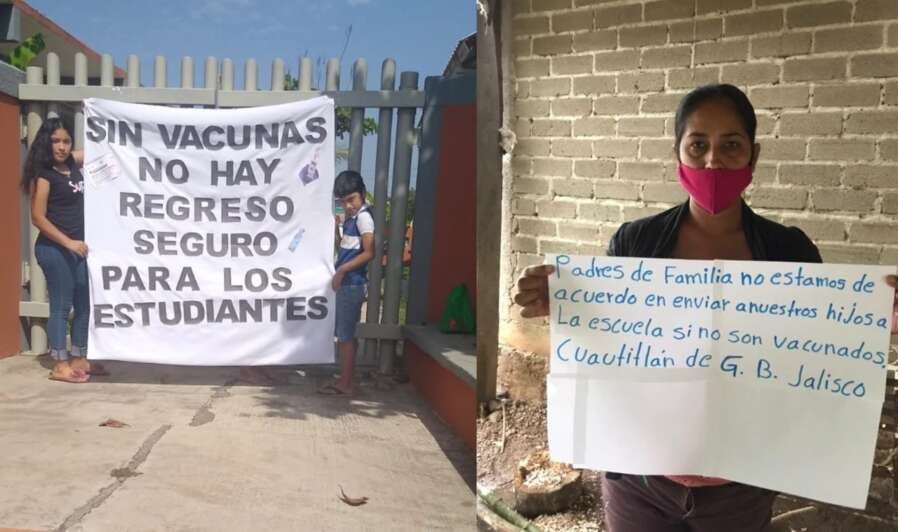 SIN VACUNAS
NO HAY
REGRESO
SEGURO
PARA LOS
ESTUDIANTES
Padres de Familia no estamos de
acuerdo en enviar anuestros hijos a
La escuela si no son vacunados.
Cuautitlán de G. B. Jalisco